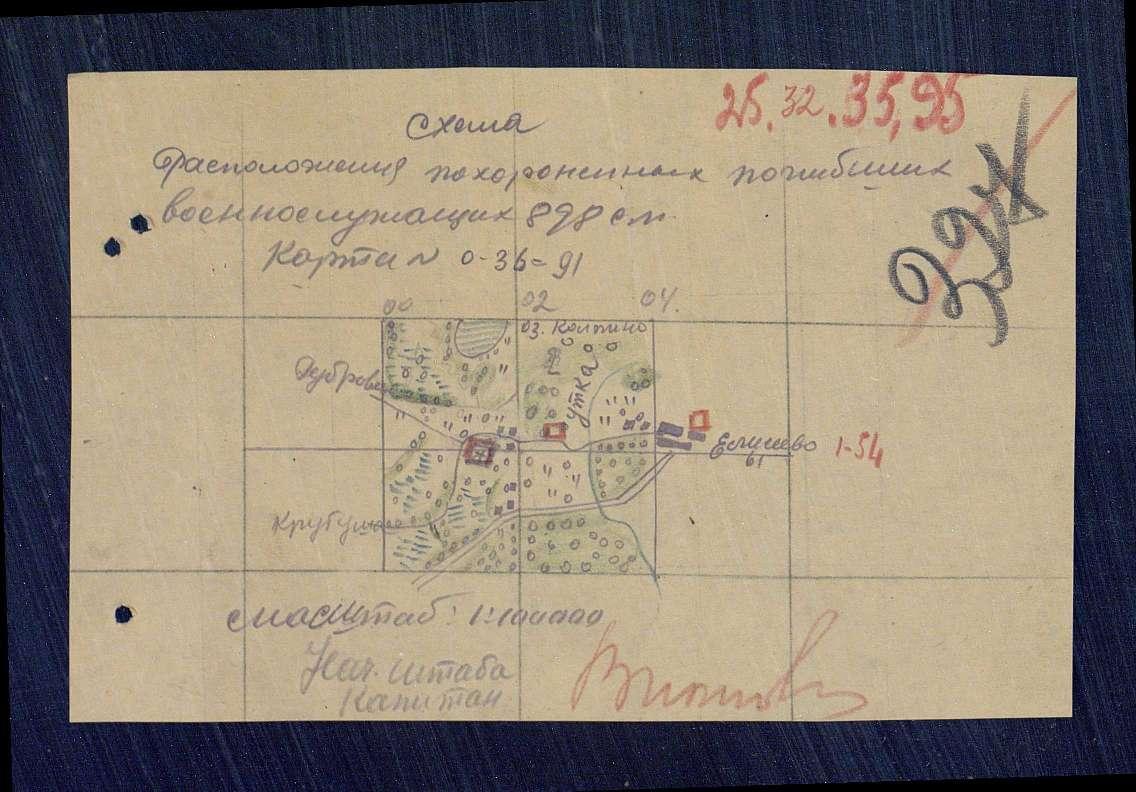 25. 32. 35, 95
схема
расположения похороненных погибших
военнослужащих 898 сп
Карта N 0-36-91
00 02 04
оз. Колпино
Дуброва
утка
1-54
61
масштаб: 1:100000
Нач. штаба
Капитан